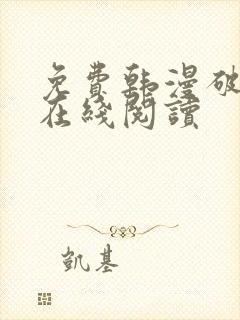 免費韩漫破
在綫閱讀
凱基